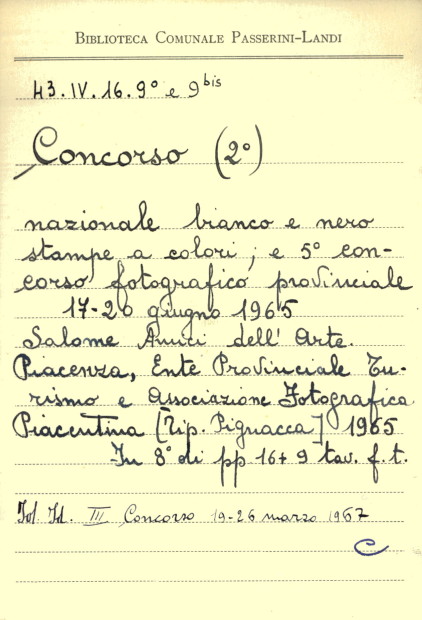 BIBLIOTECA COMUNALE PASSERINI-LANDI
43.IV.16.9° e 9bis
Concorso (2°)
nazionale bianco e nero
stampe a colori; e 5° con-
corso fotografico provinciale
17-26 giugno 1965
Salome Amici dell' Arte.
Piacenza, Ente Provinciale Tu-
rismo e Associazione Fotografica
Piacentina [Tip. Pignacca] 1965
In 8° di pp 16+9 tav. f. t.
Id. III Concorso 19-26 marzo 1967
C